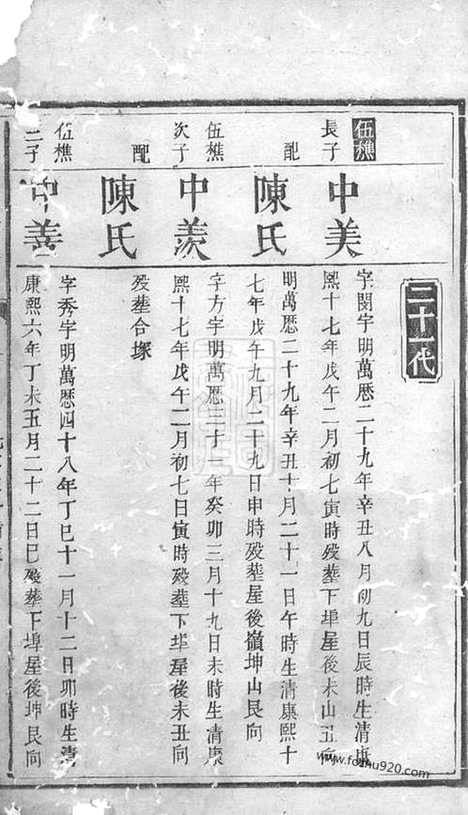 三十一代
伍樵
長子
中美
字閔宇明萬曆二十九年辛丑八月初九日辰時生清康
熙十七年戊午二月初七寅時殁塟下埠屋後未山丑向
配
陳氏
明萬曆二十九年辛丑十月二十一日午時生清康熙十
七年戊午九月二十九日申時殁塟屋後嶺坤山艮向
伍樵
次子
中羨
字方宇明萬曆三十一年癸卯三月十九日未時生清康
熙十七年戊午二月初七日寅時殁塟下埠屋後未丑向
配
陳氏
殁塟合塚
伍樵
三子
中善
字秀宇明萬曆四十八年丁巳十一月十二日卯時生清
康熙六年丁未五月二十二日巳殁葬下埠屋後坤艮向
www.fozhu920.com